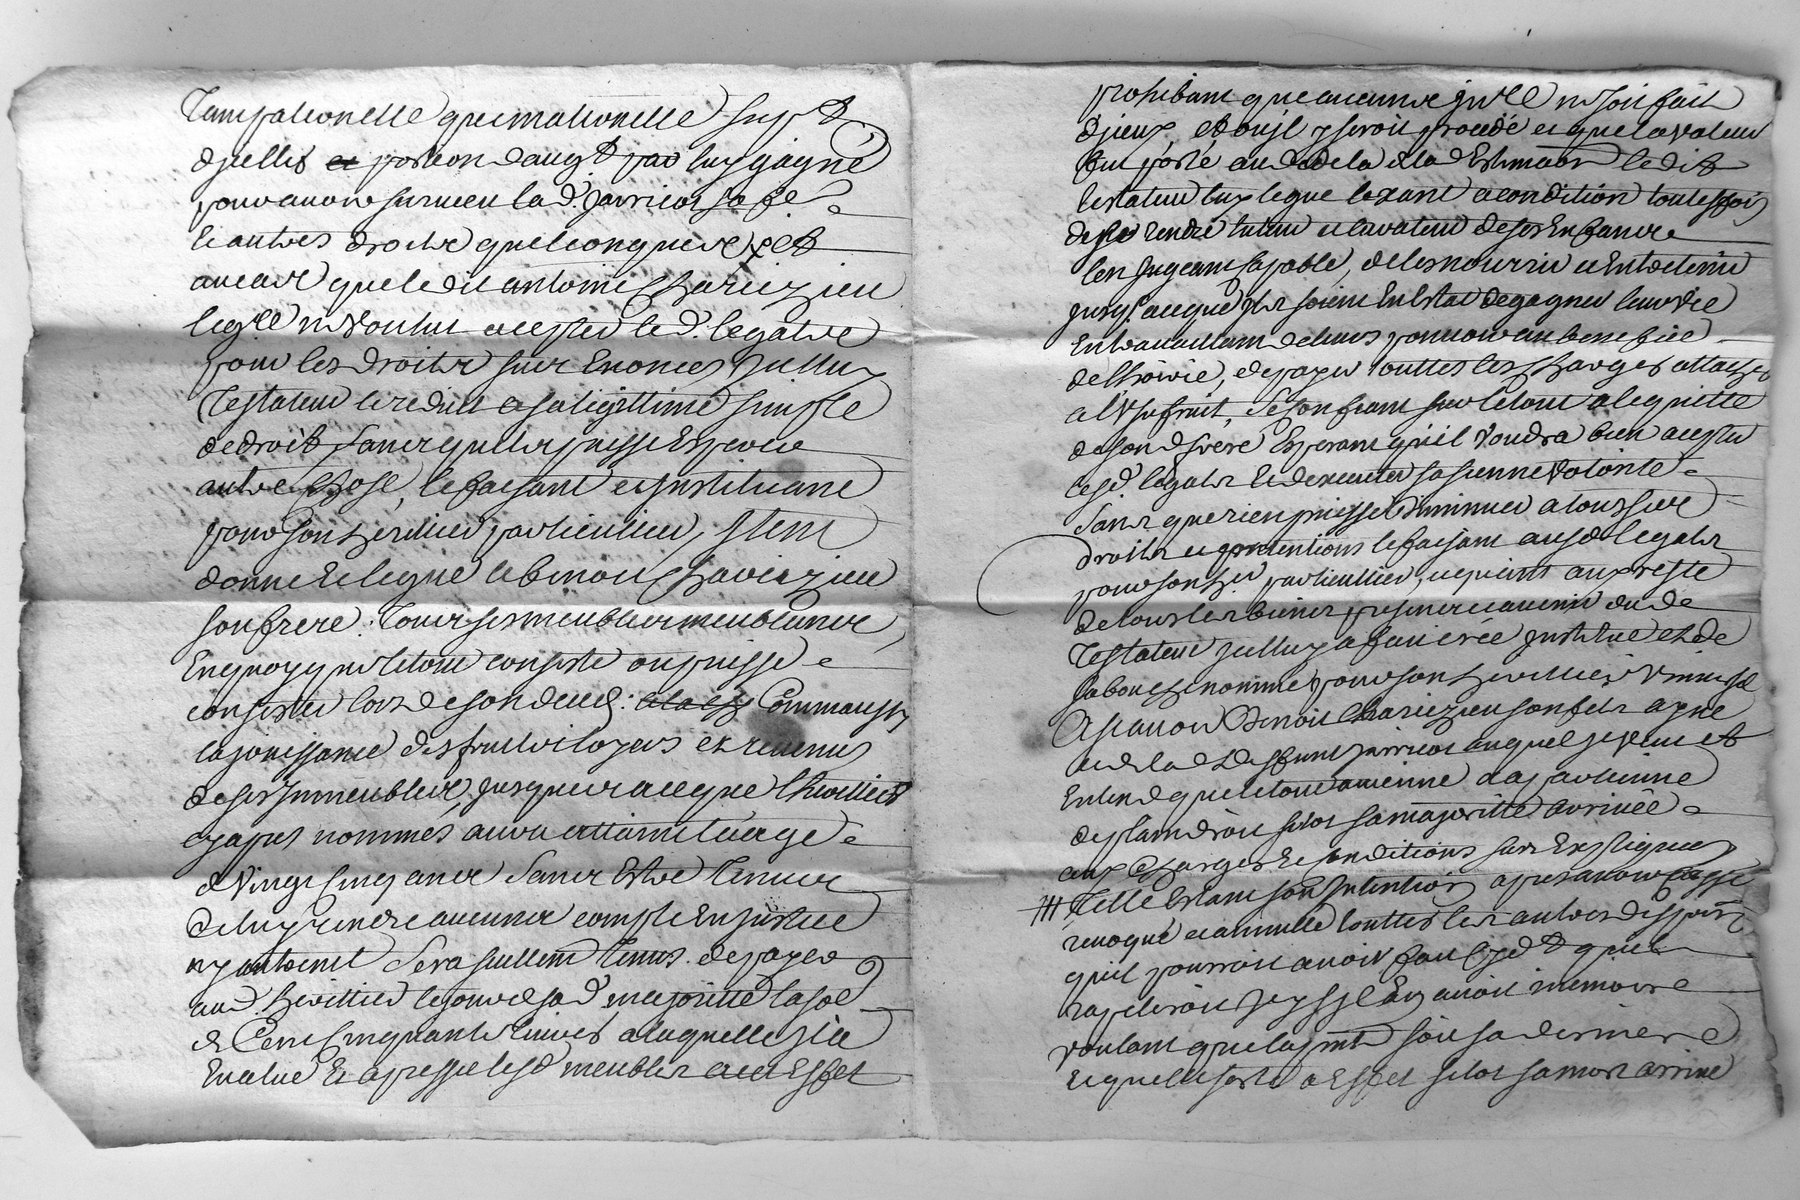 Tant paternelle que maternelle sup.t
d'jcelles et portion d'aug.t par luy gagné
pour avoir survecu lad.e
et autres droits quelconques, et
au cas que ledit antoine Chariezieu
legre ne voulut accepter led. legat
pour les droits sus Enoncés jcelluy
Testateur le reduit a sa legittime simple
de droit sans qu'il puisse Esperer
autre chose, le faisant et jnstituant
pour son heritier particulier, jtem
donne et legue a benoit Chariezieu
son frere, Tous ses meubles meublants
En quoy que le tout consiste ou puisse
consister lors de son deced. Comm' aussy
la jouissance des fruits loyers et revenus
de ses jmmeubles, jusques a ce que l'heritier
cy apres nommés aura atteint l'aage
de Vingt Cinq ans Sans Estre Tenu
de luy rendre aucuns compte En justice
ny Sera seullem.t tenus de payer
aud. heritier le jour de sad. majoritté la so.e
de Cent Cinquante Livres a laquelle jl a
Evalué Et apressié lesd. meubles et Effet
prohibant que aucuns jnv.re ne soit fait
d'jceux, et ou jl y seroit procedé et que la valeur
fut porté au dela de lad. Estimaon ledit
testateur luy legue lexant a condition touttesfois
de se rendre tuteur et curateur de ses Enfants
l'en jugeant capable, de les nourrir et Entretenir
jusq. a ce que jls soient En Estat de gagner leur vie
En travaillant de leurs pouvoir au benefice
de l'hoirie, de payer touttes les Charges attachés
a l'Usufruit, Se confiant sur le tout a l'equitté
de son d. frere Esperant qu'il voudra bien accepter
cesd. legats Et d'executer sa sienne volonté
Sans que rien puisse diminuer a tous ses
droits et pretentions le faisant aud. legats
pour son her. particullier, et quant aux reste
de tous les biens presents et avenir dud.
Testateur jcelluy a fait créé jnstitué et de
sa bouche nommé pour son heritier Universel
A sçavoir Benoit Chariezieu son fils ayné
et de lad. deffunte auquel jl veut et
Entend que le tout avienne et apartienne
de plain droit sitot sa majoritté arrivée
aux Charges et Conditions sus Expliquées
Telle Estant son jntention apres avoir cassé
revoqué et annullé touttes les autres disposi.
quil pourroit avoir fait Cyd.t quil
rapeleroit jcy s'jl En avoit memoire
voulant que la p.nte soit sa derniere
Et qu'elle sorte a Effet sitot sa mort arrivé